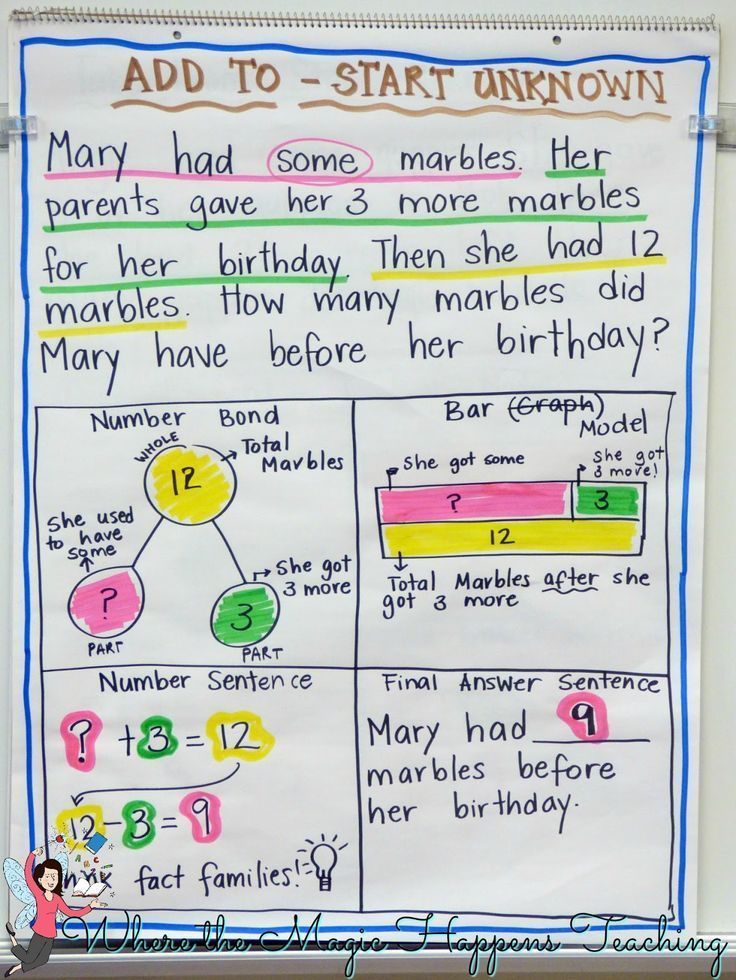 ADD TO - START UNKNOWN
Mary had some marbles. Her
parents gave her 3 more marbles
for her birthday. Then she had 12
marbles. How many marbles did
Mary have before her birthday?
Number Bond
WHOLE
Total
Marbles
12
She used
to have
some
?
PART
She got
3 more
3
PART
Bar (Graph)
Model
She got some
she got
3 more!
? 3
12
Total Marbles after she
got 3 more
Number Sentence
? + 3 = 12
12 - 3 = 9
fact families!
Final Answer Sentence
Mary had 9
marbles before
her birthday.
ABC
Where the Magic Happens Teaching